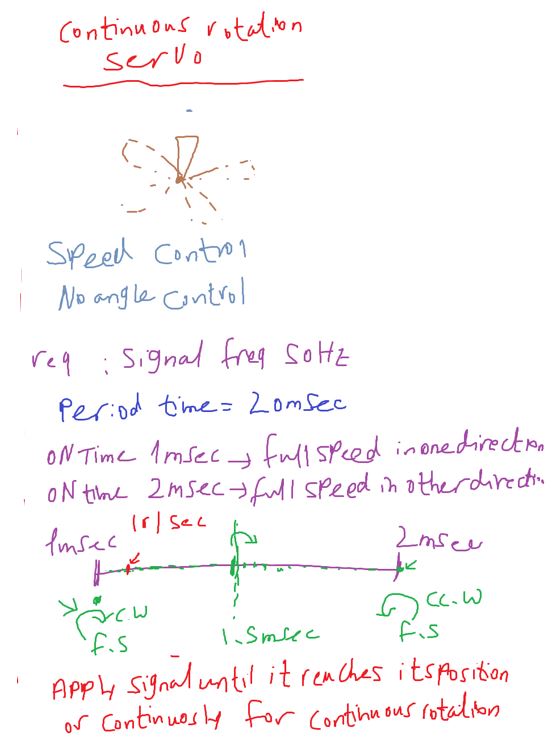 Continuous rotation
servo
Speed Control
No angle control
req : Signal freq 50Hz
Period time = 20msec
ON Time 1msec → full speed in one direction
ON time 2msec → full speed in other directi
1r/sec
1msec
2msec
C.W
F.S
1.5msec
CC.W
F.S
APPly signal until it reaches its position
or continuosly for continuous rotation